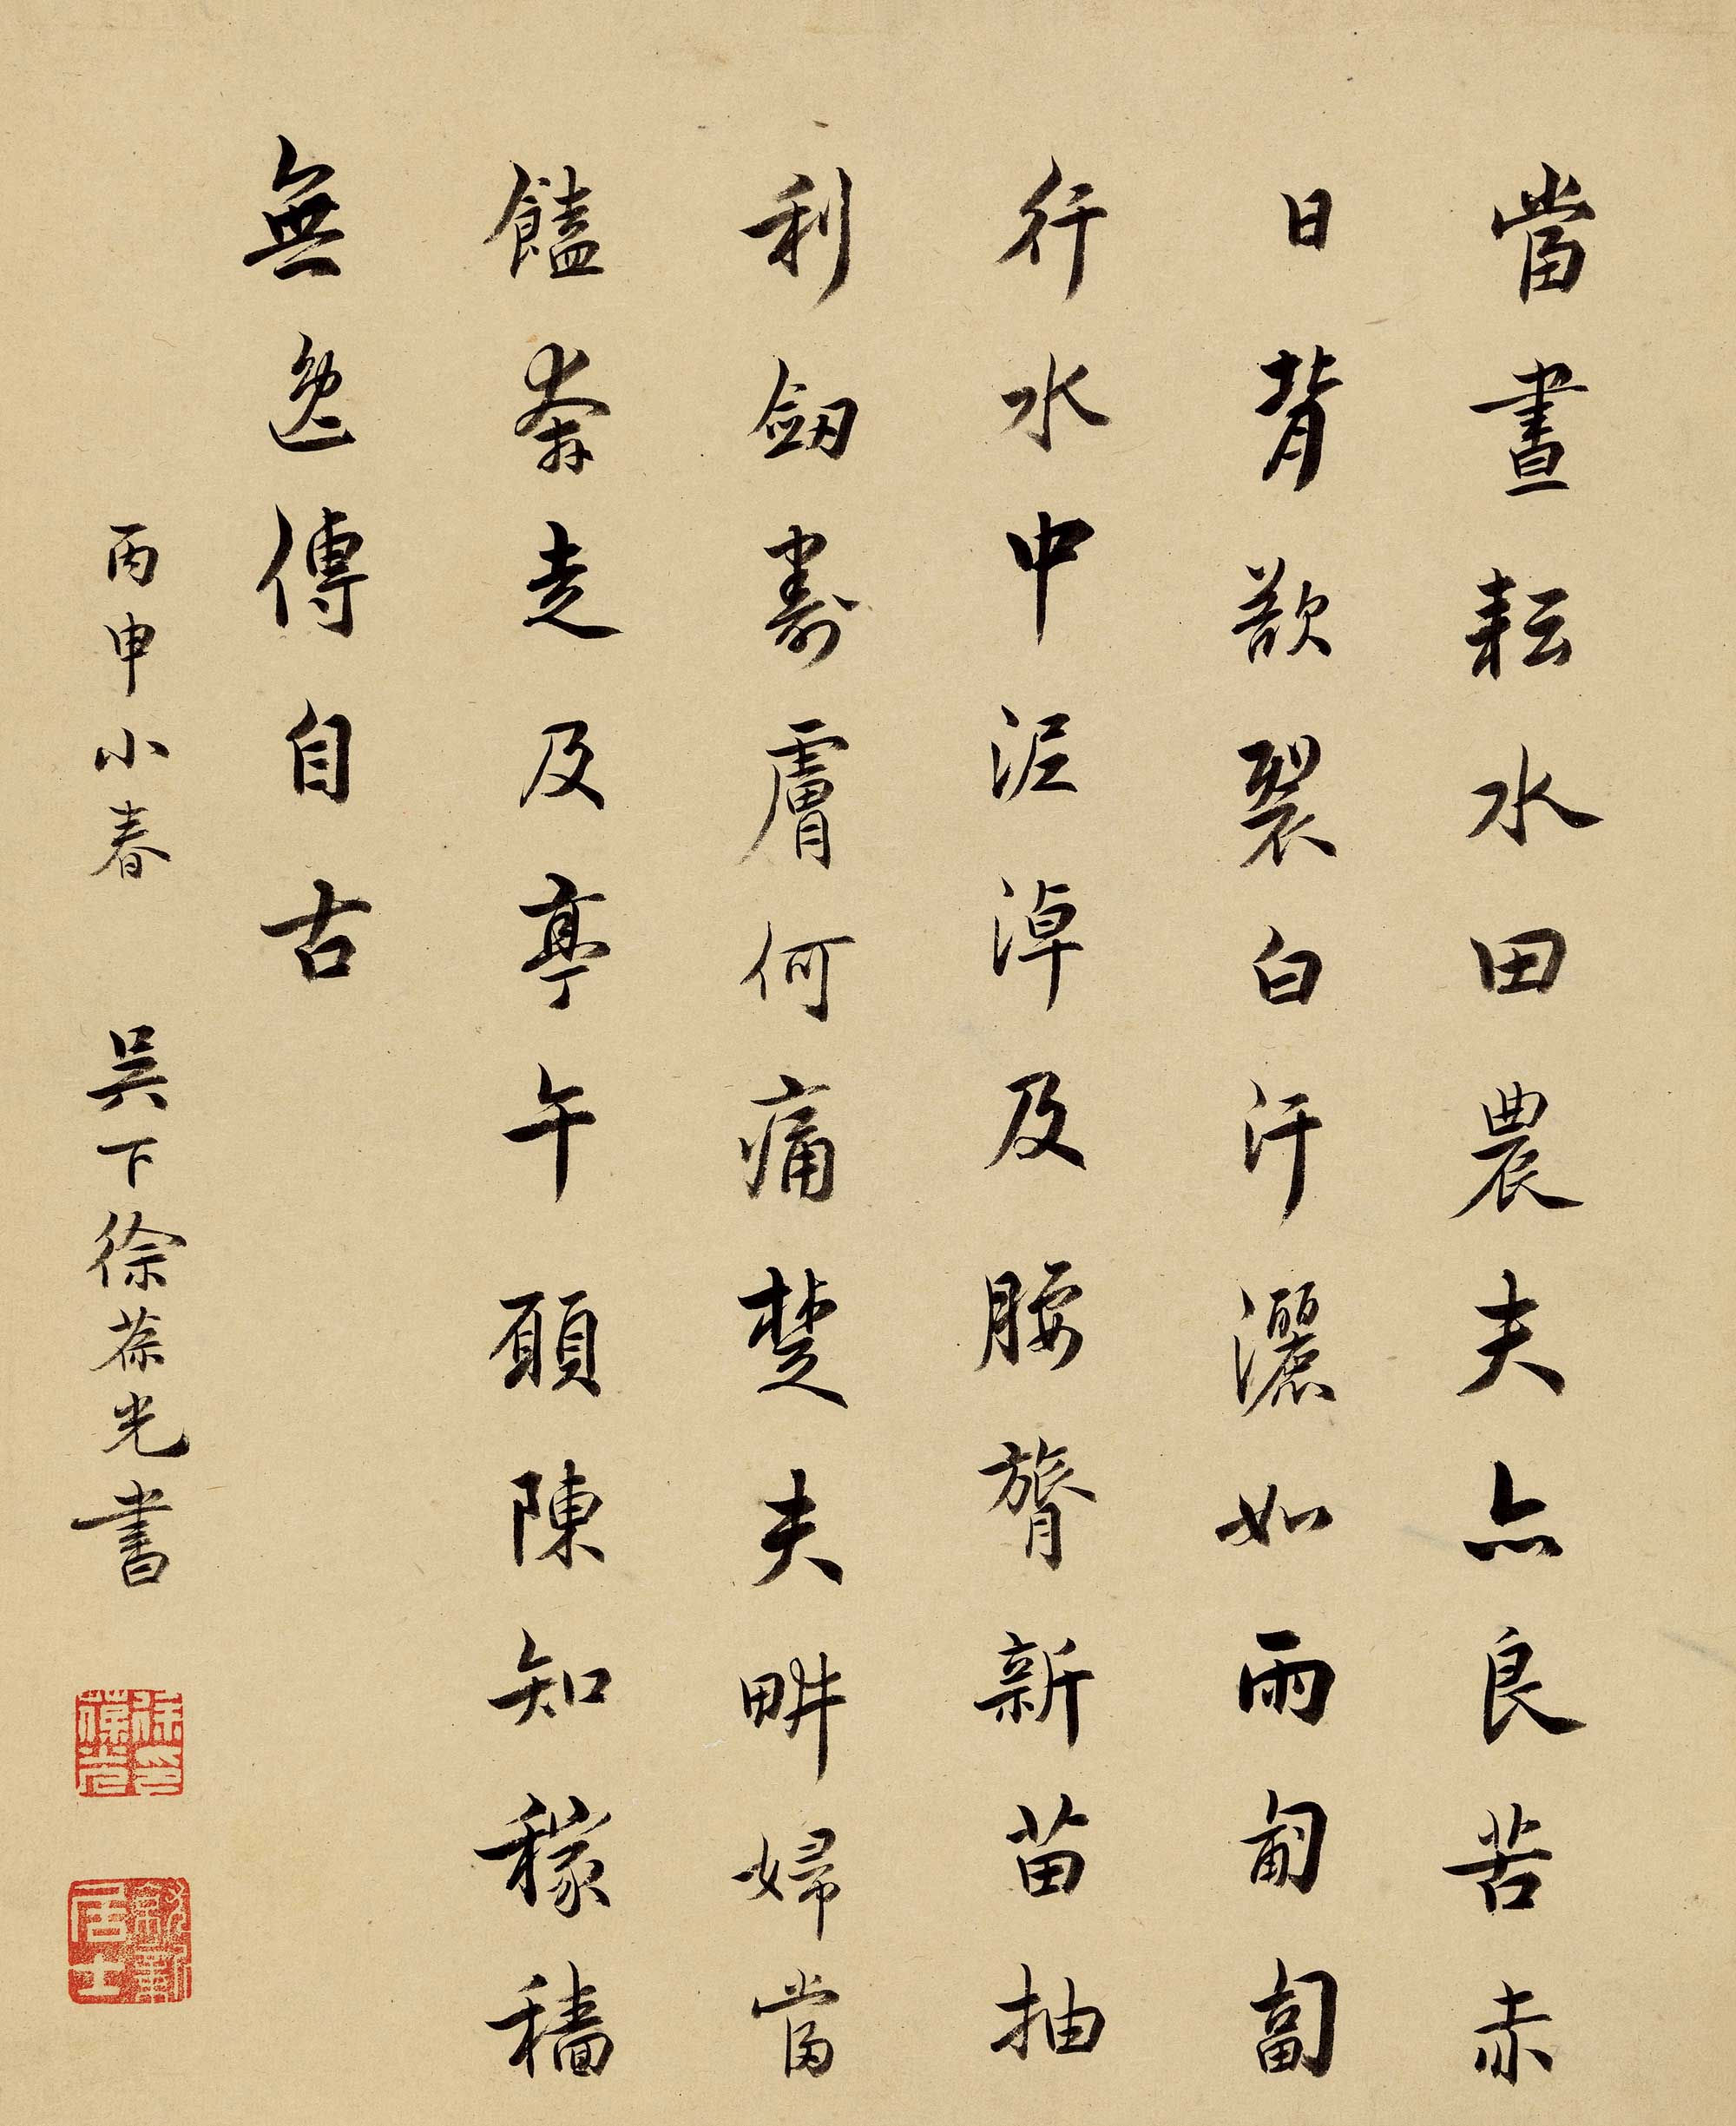 當晝耘水田農夫亦良苦赤
日背欲裂白汗灑如雨匍匐
行水中泥淖及腰膂新苗抽
利劒劃膚何痛楚夫畊婦當
饁奔走及亭午願陳知稼穡
無逸傳自古
丙申小春 吳下徐葆光書
徐印葆光
居士